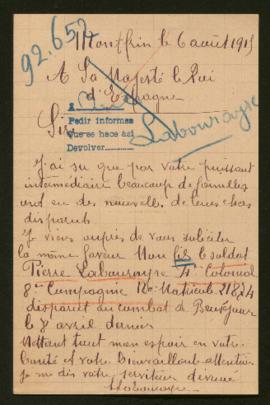 92.652
Montfrin le 6 août 1915
A Sa Majesté le Roi
d'Espagne
Sire
Pedir informes
que se hace así
Devolver
Labourayre
J'ai su que par votre puissant
intermédiaire beaucoup de familles
ont eu des nouvelles de leurs chers
disparus
Je viens auprès de vous solliciter
la même faveur Mon fils le soldat
Pierre Labourayre 4e Colonial
8e Compagnie Matricule 21824
disparut au combat de
le 8 avril dernier
Mettant tout mon espoir en votre
bonté et votre bienveillante attention
je me dis votre serviteur dévoué
Labourayre